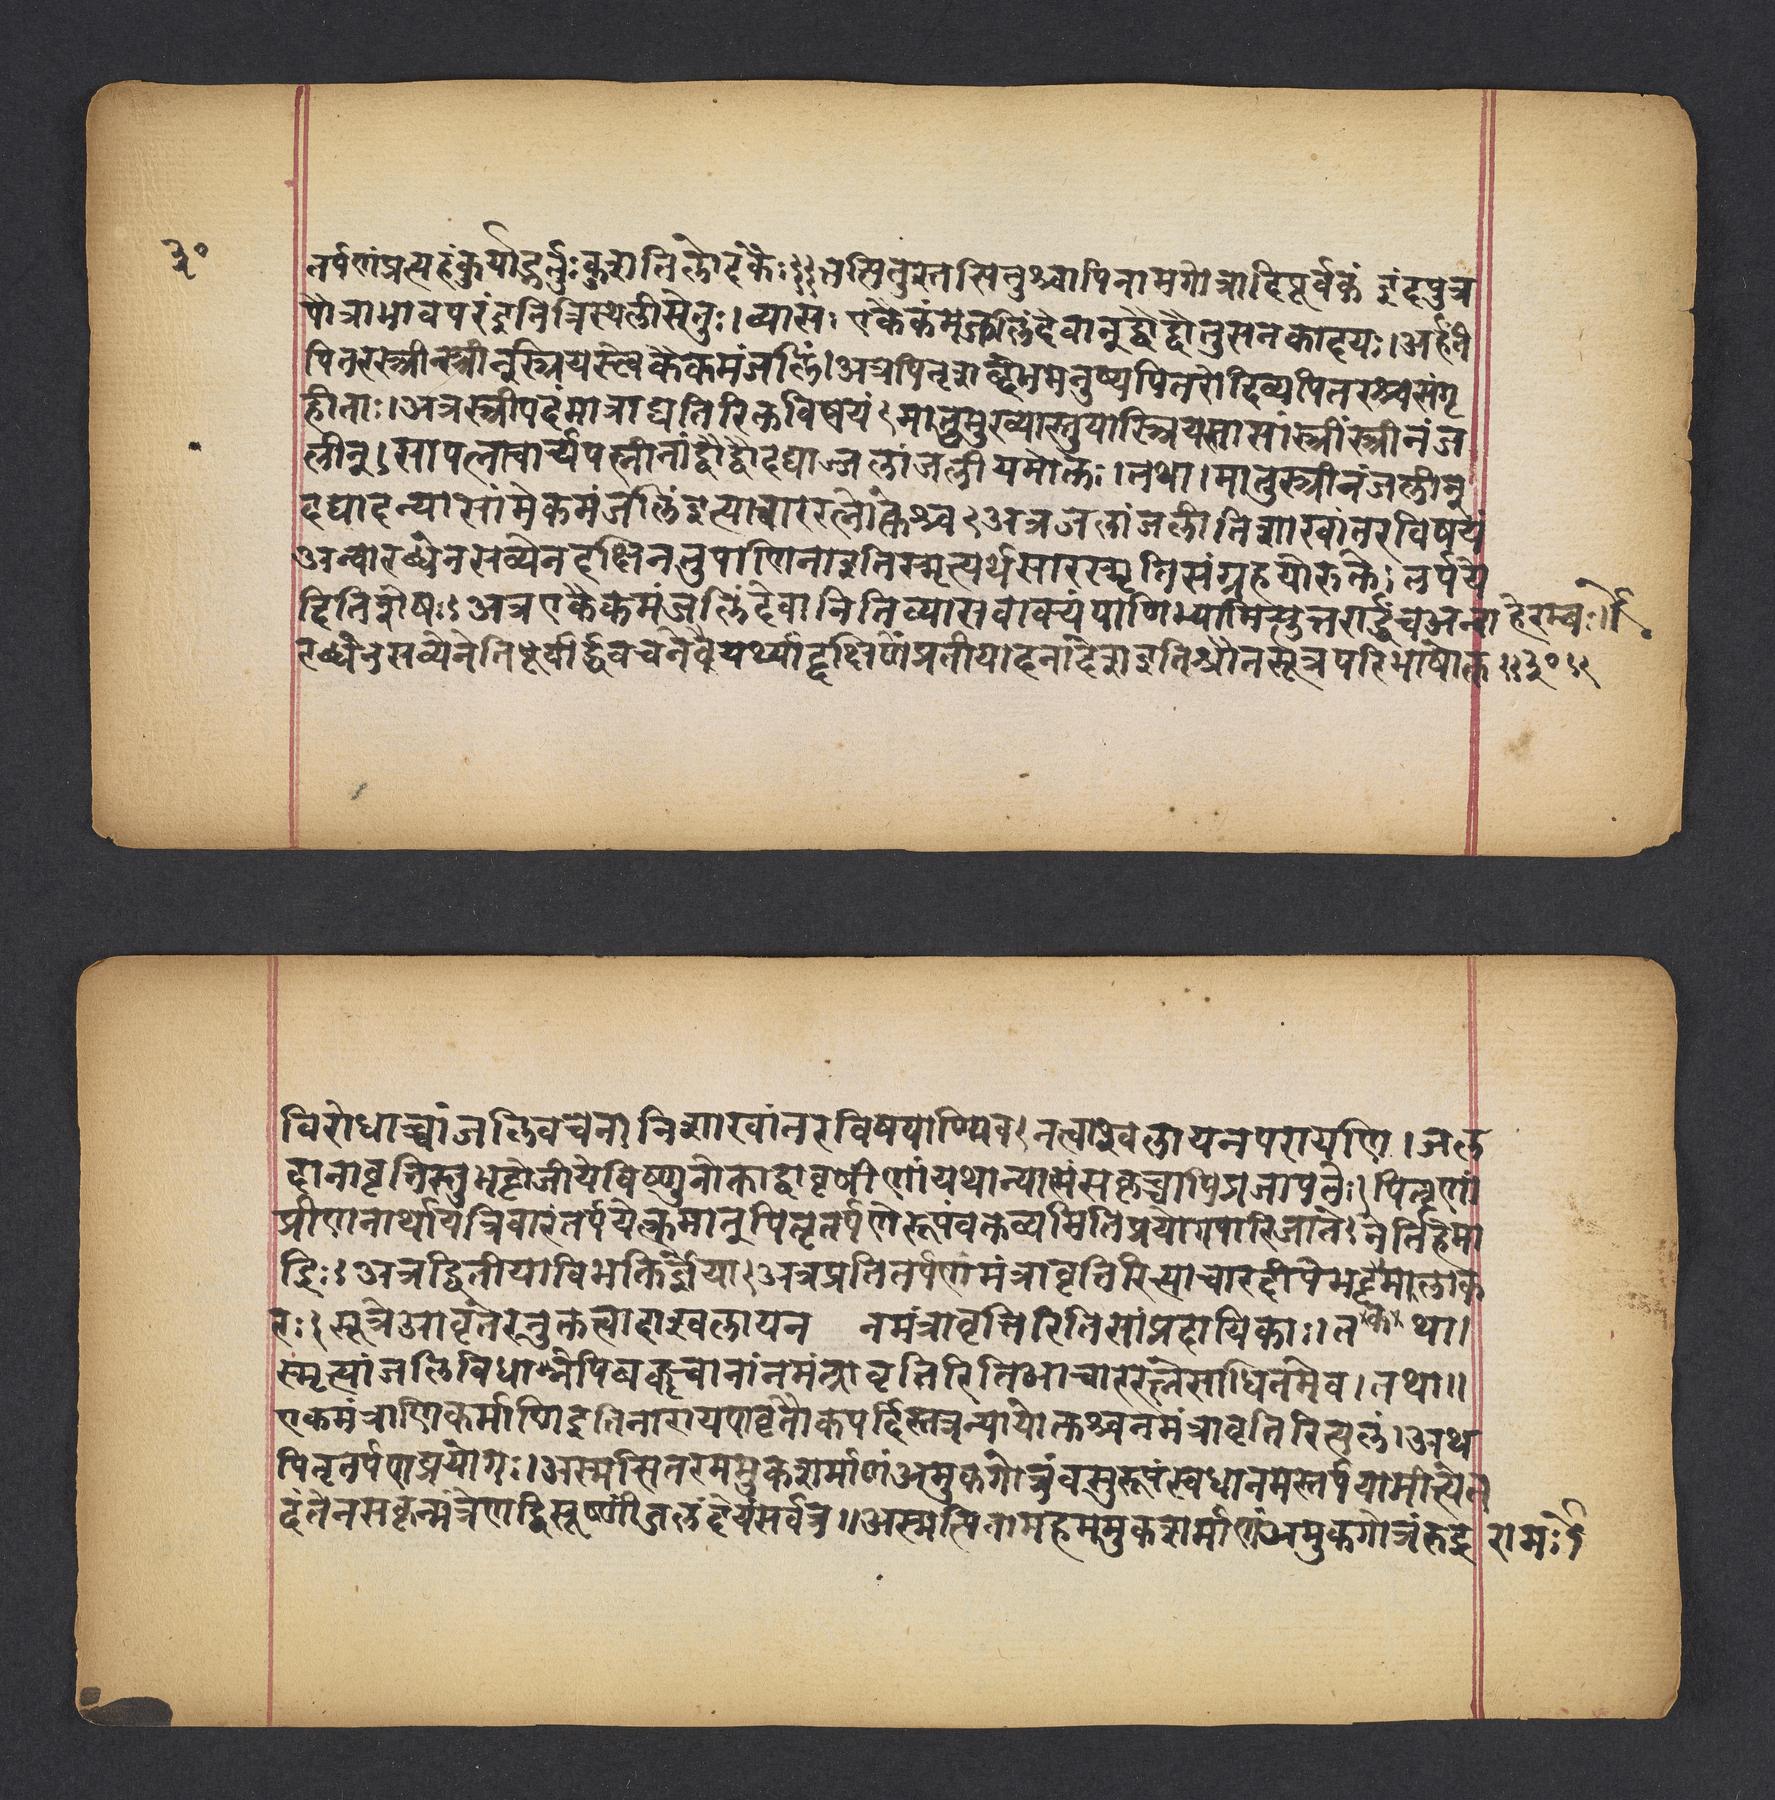 ३०
तर्पणंप्रत्यहंकुर्याद्भर्तुःकुशतिलोदकैः॥तत्पितुस्तत्पितुश्चापिनामगोत्रादिपूर्वकं इदंपुत्र
पौत्राभावपरंइतित्रिस्थलीसेतुः।व्यासः एकैकमंजलिंदेवान्द्वौद्वौतुसनकादयः।अर्हंति
पितरस्त्रींस्त्रीन्स्त्रियस्त्वेकैकमंजलिं।अत्रपितृशब्देनमनुष्यपितरोदिव्यपितरश्चसंगृ
हीताः।अत्रस्त्रीपदंमात्राद्यतिरिक्तविषयं।मातृमुख्यास्तुयास्त्रियस्तासांस्त्रींस्त्रीनंज
लीन्।सापत्नाचार्यपत्नीनांद्वौद्वौदद्याज्जलांजलीयमोक्तः।तथा।मातुस्त्रीनंजलीन्
दद्यादन्यासांमेकमंजलिंइत्याचाररत्नोक्तेश्च।अत्रजलांजलीतिशाखांतरविषयं
अन्वारब्धेनसव्येनदक्षिनतुपाणिनाइतिस्मृत्यर्थसारस्मृतिसंग्रहयोरुक्तैः तर्पये
दितिशेषः।अत्रएकैकमंजलिंदेवानितिव्यासवाक्यंपाणिभ्यामित्युत्तरार्द्धंचअन्वा हेरम्बः॥
रब्धेनसव्येनेतिपूर्वार्द्धवचनवैयर्थ्याद्दक्षिणंप्रतीयादनादेशइतिश्रौतसूत्रपरिभाषोक्त॥३०॥
विरोधाच्चांजलिवचनानिशाखांतरविषयाण्येव।नत्वाश्वलायनपरायणि।जल
दानावृत्तिस्तुभट्टोजीयेविष्णुनोक्ताद्वावृषीणांयथान्यासंसकृच्चापिप्रजापतेः।पितॄणां
प्रीणनार्थायत्रिवारंतर्पयेत्क्रमात्पितृतर्पणेरूपंवक्तव्यमितिप्रयोगपारिजाते।नेतिहेमा
द्रिः।अत्रद्वितीयाविभक्तिर्ज्ञेया।अत्रप्रतितर्पणंमंत्रावृत्तिरित्याचारदीपेभट्टमालाक
रः।सूत्रेआवृतेरनुक्तत्वादाश्वलायन नमंत्रावृत्तिरितिसांप्रदायिकाः।त क था।
स्मृत्यांजलिविधानेपिबह्वृचानांनमंत्रावृत्तिरितिआचाररत्नेसाधितमेव।तथा॥
एकमंत्राणिकर्माणिइतिनारायणवृत्तौकपर्दिस्तत्रन्यायोक्तश्चनमंत्रावृत्तिरित्यलं।अथ
पितृतर्पणप्रयोगः।अस्मत्पितरममुकशर्माणंअमुकगोत्रंवसुरूपंस्वधानमस्तर्पयामीत्येत
दंतेनसकृन्मंत्रेणद्विस्तूष्णींजलंदेयंसर्वत्र॥अस्मत्पितामहममुकशर्माणंअमुकगोत्रंरुद्र रामः॥